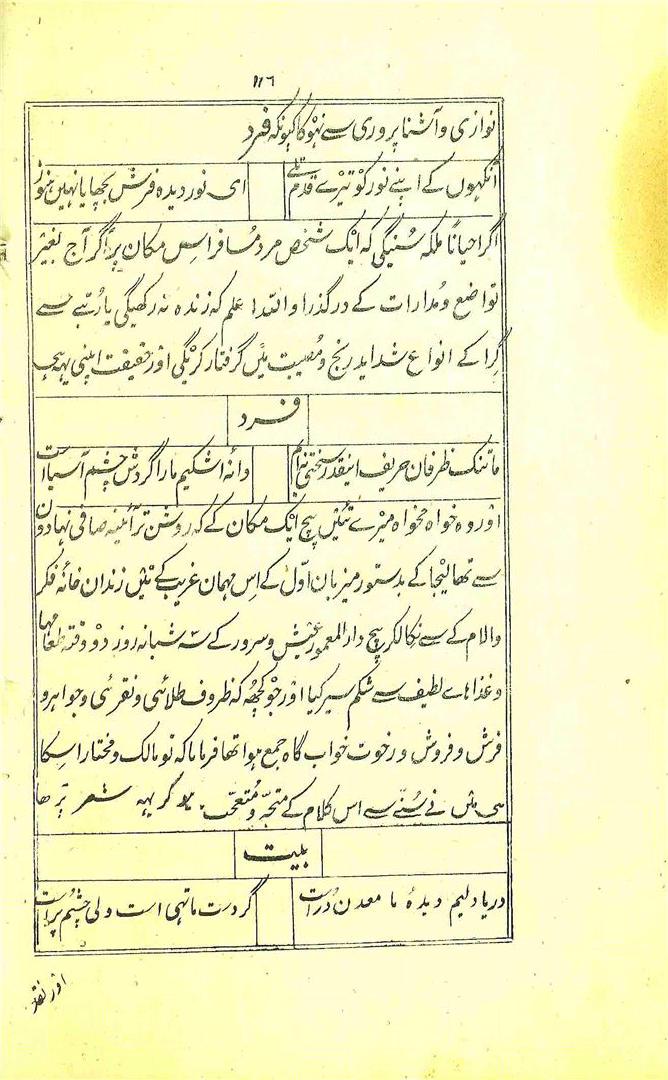 ١١٦
نوازی و آشنا پروری سے نہوگا کیونکہ فرد
آنکہوں کے اپنے نور کو تیرے قدم تلے ای نور دیدہ فرش بچھایا نہیں ہنوز
اگر احیاناً ملکہ سُنیگی کہ ایک شخص مرد مُسافر اس مکان پر اگر آج بغیر
تواضع و مُدارات کے درگذرا واللہ اعلم کہ زندہ نہ رکھیگی یا رُتبے سے
گِرا کے انواع شداید رنج و مُصیبت میں گرفتار کریگی اور حقیقت اپنی یہہ ہے
فرد
ما تنک ظرفان حریف اینقدر سختی نہ ایم دانۂ اشکیم ما را گردش چشم آسیا است
اور وہ خواہ مخواہ میرے تئیں بیچ ایک مکان کے کہ روشن تر آئینہ صافی نہادون
سے تھا لیجا کے بدستور میزبان اوّل کے اِس مہمان غریب کے تئیں زندان خانۂ فکر
والام کے سے نکالکر بیچ دار المعمور عیش و سرور کے سہ شبانہ روز دو وقتہ طعامہا
و غذاہاے لطیف سے شکم سیر کیا اور جو کچھہ کہ ظروف طلائی و نقرئی و جواہر و
فرش و فروش و رخوت خواب گاہ جمع ہوا تھا فرمایا کہ تو مالک و مختار اسکا
ہی میں نے سُننے سے اس کلام کے متحیّر و مُتعجّب ہو کر یہہ شعر پڑھا
بیت
دریا دلیم دیدۂ ما معدن دُر است گر دست ما تہی است ولی چشم پر است
اور نقد